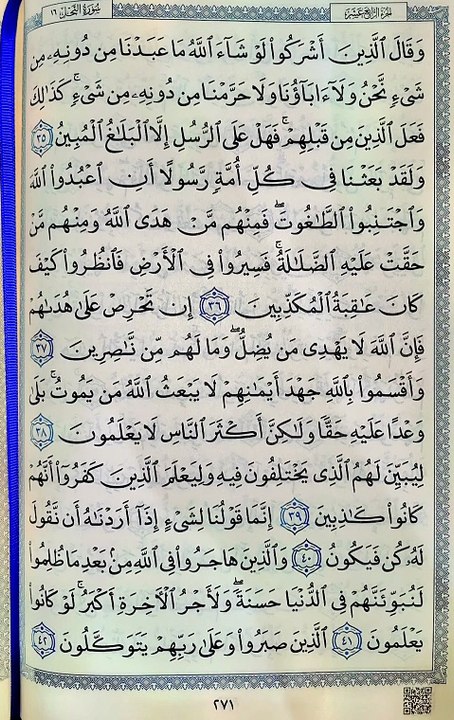 الجزء الرابع عشر
سورة النحل ١٦
وَقَالَ ٱلَّذِينَ أَشْرَكُوا۟ لَوْ شَآءَ ٱللَّهُ مَا عَبَدْنَا مِن دُونِهِۦ مِن
شَىْءٍ نَّحْنُ وَلَآ ءَابَآؤُنَا وَلَا حَرَّمْنَا مِن دُونِهِۦ مِن شَىْءٍ ۚ كَذَٰلِكَ
فَعَلَ ٱلَّذِينَ مِن قَبْلِهِمْ ۚ فَهَلْ عَلَى ٱلرُّسُلِ إِلَّا ٱلْبَلَٰغُ ٱلْمُبِينُ ٣٥
وَلَقَدْ بَعَثْنَا فِى كُلِّ أُمَّةٍ رَّسُولًا أَنِ ٱعْبُدُوا۟ ٱللَّهَ
وَٱجْتَنِبُوا۟ ٱلطَّٰغُوتَ ۖ فَمِنْهُم مَّنْ هَدَى ٱللَّهُ وَمِنْهُم مَّنْ
حَقَّتْ عَلَيْهِ ٱلضَّلَٰلَةُ ۚ فَسِيرُوا۟ فِى ٱلْأَرْضِ فَٱنظُرُوا۟ كَيْفَ
كَانَ عَٰقِبَةُ ٱلْمُكَذِّبِينَ ٣٦ إِن تَحْرِصْ عَلَىٰ هُدَىٰهُمْ
فَإِنَّ ٱللَّهَ لَا يَهْدِى مَن يُضِلُّ ۖ وَمَا لَهُم مِّن نَّٰصِرِينَ ٣٧
وَأَقْسَمُوا۟ بِٱللَّهِ جَهْدَ أَيْمَٰنِهِمْ ۙ لَا يَبْعَثُ ٱللَّهُ مَن يَمُوتُ ۚ بَلَىٰ
وَعْدًا عَلَيْهِ حَقًّا وَلَٰكِنَّ أَكْثَرَ ٱلنَّاسِ لَا يَعْلَمُونَ ٣٨
لِيُبَيِّنَ لَهُمُ ٱلَّذِى يَخْتَلِفُونَ فِيهِ وَلِيَعْلَمَ ٱلَّذِينَ كَفَرُوٓا۟ أَنَّهُمْ
كَانُوا۟ كَٰذِبِينَ ٣٩ إِنَّمَا قَوْلُنَا لِشَىْءٍ إِذَآ أَرَدْنَٰهُ أَن نَّقُولَ
لَهُۥ كُن فَيَكُونُ ٤٠ وَٱلَّذِينَ هَاجَرُوا۟ فِى ٱللَّهِ مِنۢ بَعْدِ مَا ظُلِمُوا۟
لَنُبَوِّئَنَّهُمْ فِى ٱلدُّنْيَا حَسَنَةً ۖ وَلَأَجْرُ ٱلْـَٔاخِرَةِ أَكْبَرُ ۚ لَوْ كَانُوا۟
يَعْلَمُونَ ٤١ ٱلَّذِينَ صَبَرُوا۟ وَعَلَىٰ رَبِّهِمْ يَتَوَكَّلُونَ ٤٢
٢٧١